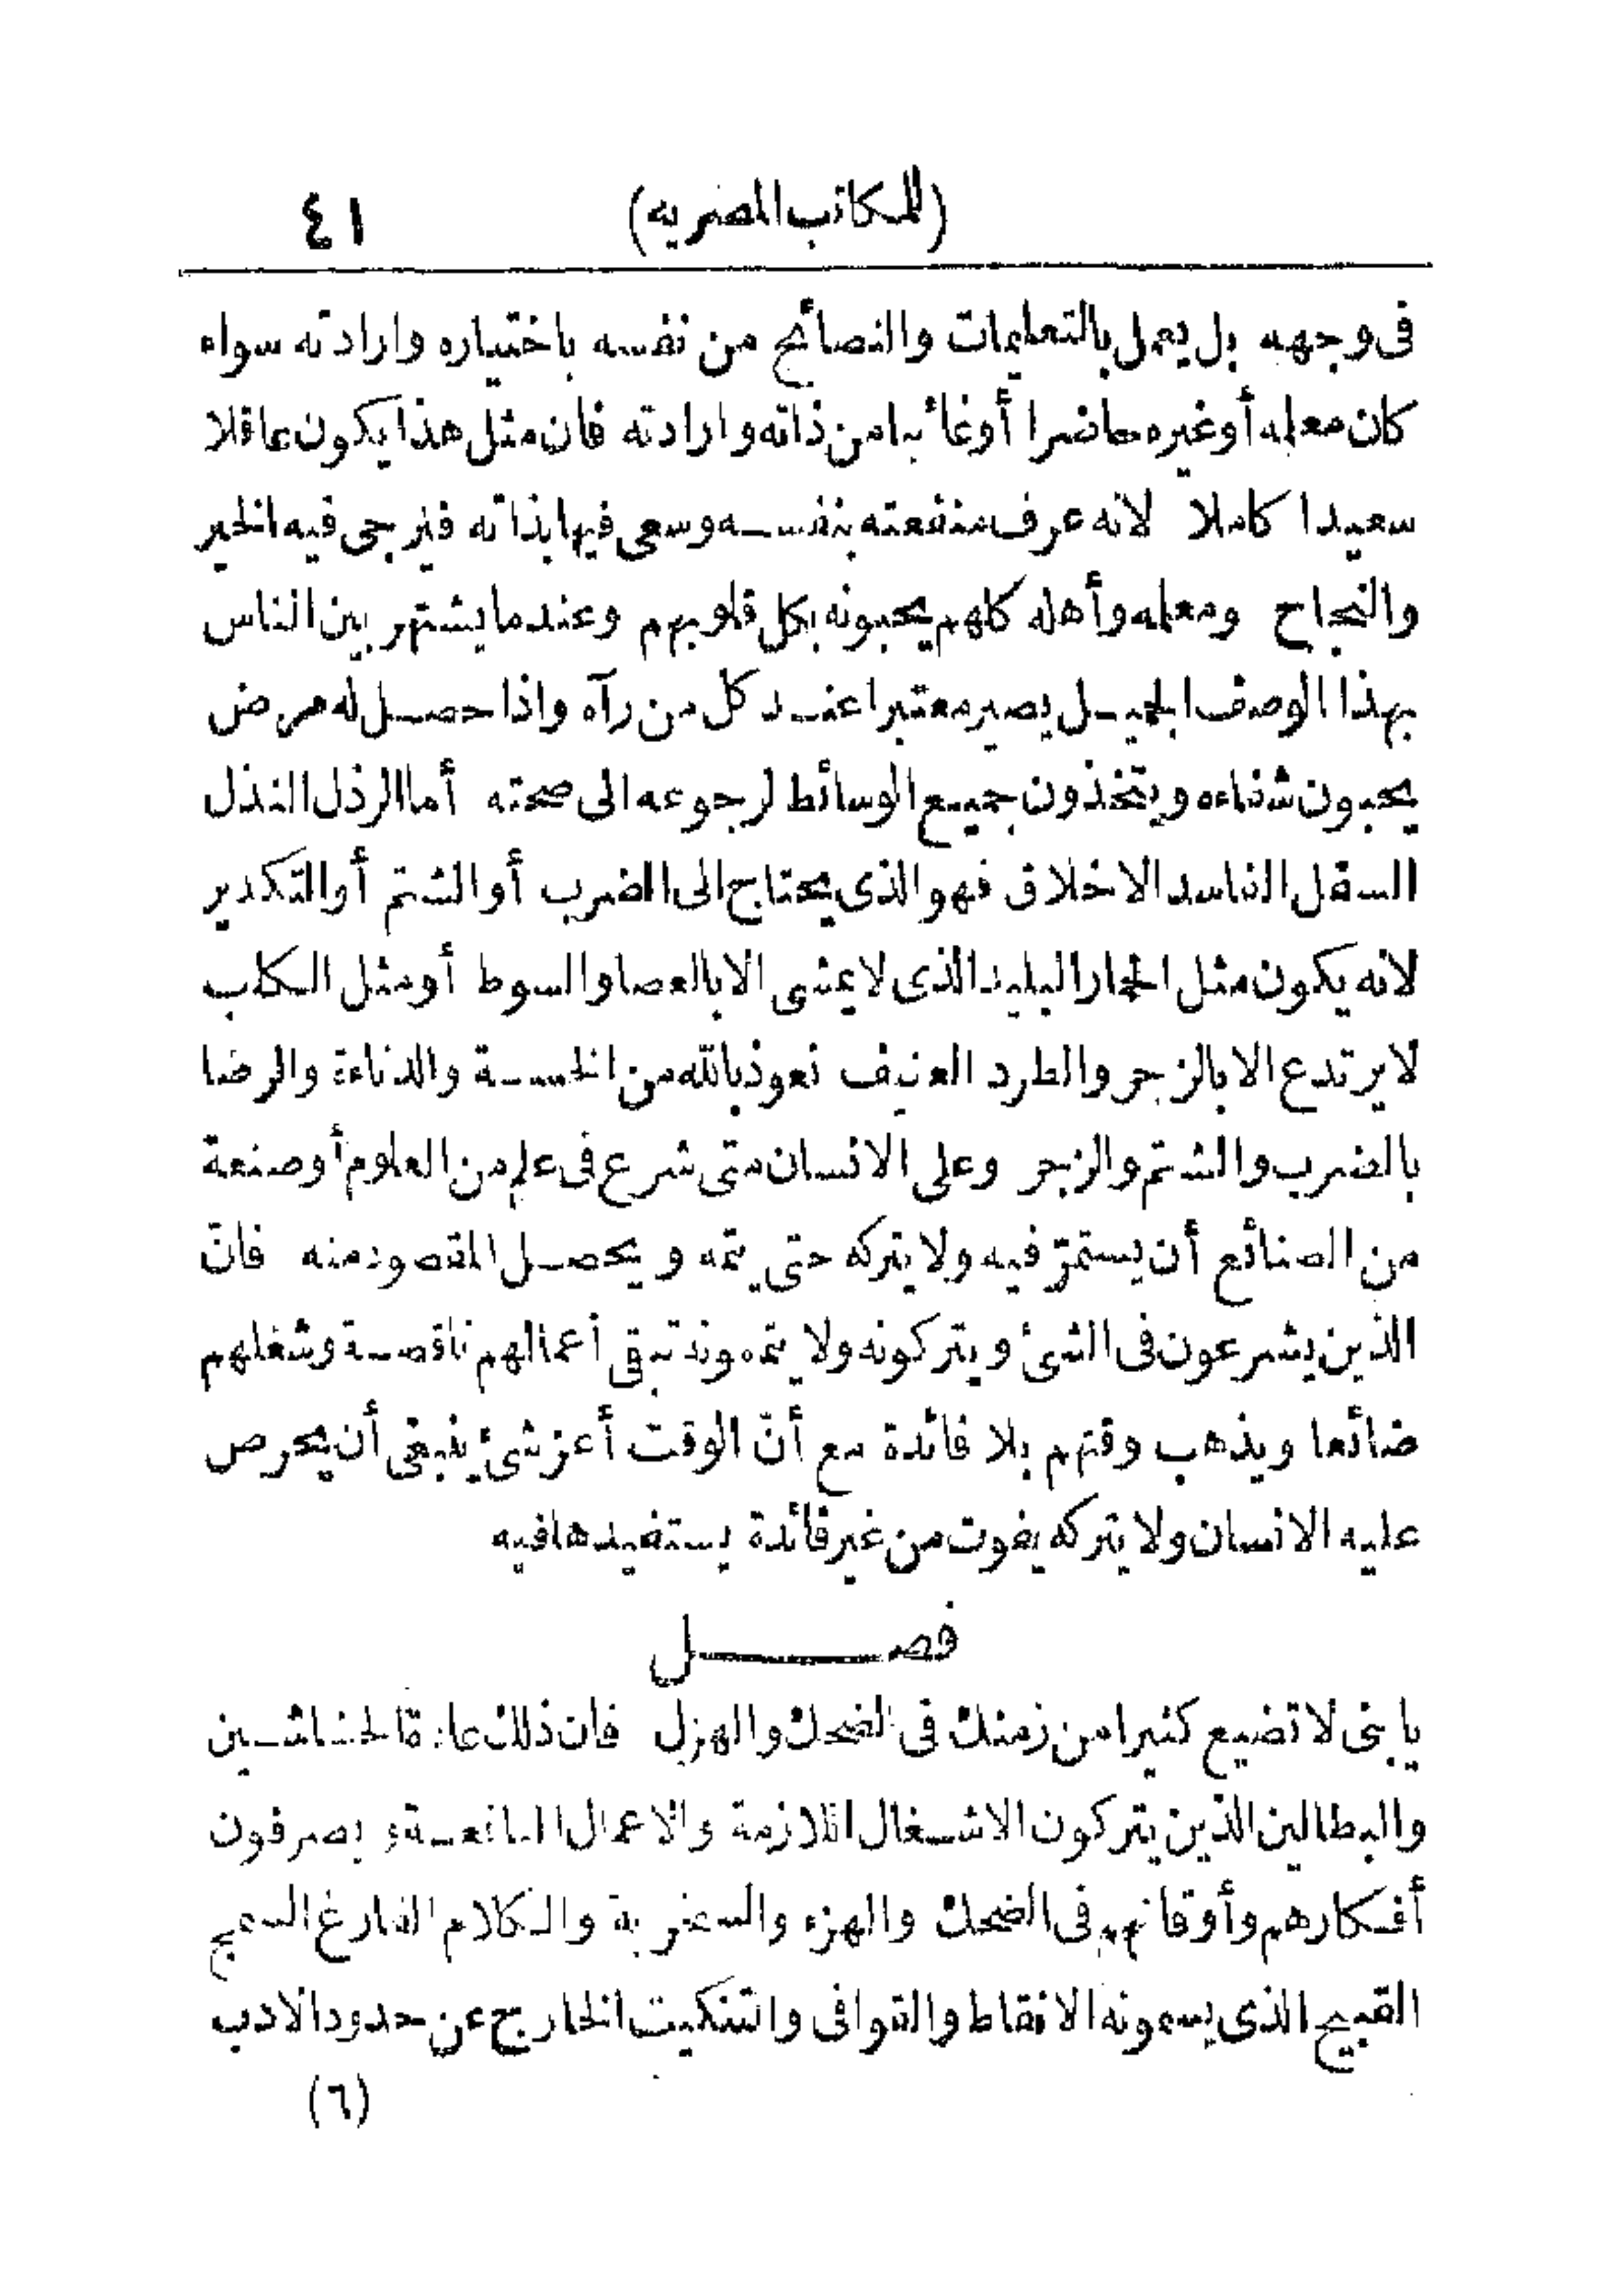 (للمكاتب المصريه) ٤١
فى وجهه بل يعمل بالتعليمات والنصائح من نفسه باختياره وارادته سواء
كان معلمه أو غيره حاضرا أو غائبا من ذاته وارادته فان مثل هذا يكون عاقلا
سعيدا كاملا لانه عرف منفعته بنفسه وسعى فيها بذاته فيترجى فيه الخير
والنجاح ومعلمه وأهله كلهم يحبونه بكل قلوبهم وعند ما يشتهر بين الناس
بهذا الوصف الجميل يصير معتبرا عند كل من رآه واذا حصل له مرض
يحبون شفاءه ويتخذون جميع الوسائط لرجوعه الى صحته أما الرذل النذل
السفل الفاسد الاخلاق فهو الذى يحتاج الى الضرب أو الشتم أو التكدير
لانه يكون مثل الحمار البليد الذى لا يمشى الا بالعصا والسوط أو مثل الكلب
لا يرتدع الا بالزجر والطرد العنيف نعوذ بالله من الخسة والدناءة والرضا
بالضرب والشتم والزجر وعلى الانسان متى شرع فى علم من العلوم أو صنعة
من الصنائع أن يستمرّ فيه ولا يتركه حتى يتمه و يحصل المقصود منه فانّ
الذين يشرعون فى الشئ ويتركونه ولا يتمونه تبقى أعمالهم ناقصة وشغلهم
ضائعا ويذهب وقتهم بلا فائدة مع أنّ الوقت أعز شئ ينبغى أن يحرص
عليه الانسان ولا يتركه يفوت من غير فائدة يستفيدها فيه
فصل
يا بنى لا تضيع كثيرا من زمنك فى الضحك والهزل فان ذلك عادة الحشاشين
والبطالين الذين يتركون الاشغال اللازمة والاعمال النافعة و يصرفون
أفكارهم وأوقاتهم فى الضحك والهزء والسخرية والكلام الفارغ السمج
القبيح الذى يسمونه الانقاط والقوافى والتنكيت الخارج عن حدود الادب
(٦)